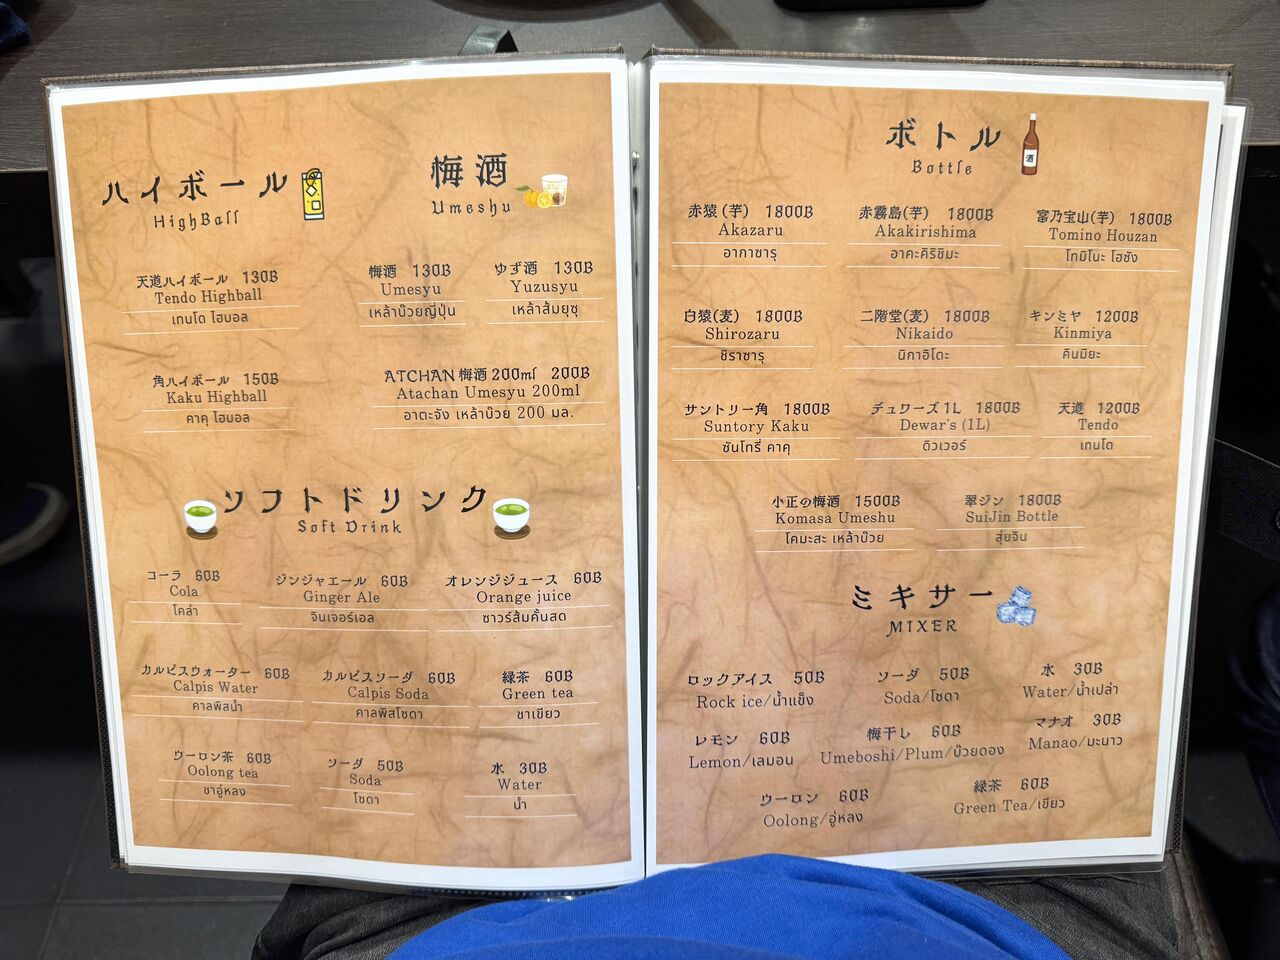 ハイボール
HighBall
梅酒
Umeshu
天道ハイボール 130B
Tendo Highball
เทนโด ไฮบอล
梅酒 130B
Umesyu
เหล้าบ๊วยญี่ปุ่น
ゆず酒 130B
Yuzusyu
เหล้าส้มยุซุ
角ハイボール 150B
Kaku Highball
คาคุ ไฮบอล
ATCHAN 梅酒 200ml 200B
Atachan Umesyu 200ml
อาตะจัง เหล้าบ๊วย 200 มล.
ソフトドリンク
Soft Drink
コーラ 60B
Cola
โคล่า
ジンジャエール 60B
Ginger Ale
จินเจอร์เอล
オレンジジュース 60B
Orange juice
ซาวร์ส้มคั้นสด
カルピスウォーター 60B
Calpis Water
คาลพิสน้ำ
カルピスソーダ 60B
Calpis Soda
คาลพิสโซดา
緑茶 60B
Green tea
ชาเขียว
ウーロン茶 60B
Oolong tea
ชาอู่หลง
ソーダ 50B
Soda
โซดา
水 30B
Water
น้ำ
ボトル
Bottle
酒
赤猿(芋) 1800B
Akazaru
อากาซารุ
赤霧島(芋) 1800B
Akakirishima
อาคะคิริชิมะ
富乃宝山(芋) 1800B
Tomino Houzan
โทมิโนะ โฮซัง
白猿(麦) 1800B
Shirozaru
ชิราซารุ
二階堂(麦) 1800B
Nikaido
นิกาอิโดะ
キンミヤ 1200B
Kinmiya
คินมิยะ
サントリー角 1800B
Suntory Kaku
ซันโทรี่ คาคุ
デュワーズ 1L 1800B
Dewar's (1L)
ดิวเวอร์
天道 1200B
Tendo
เทนโด
小正の梅酒 1500B
Komasa Umeshu
โคมะสะ เหล้าบ๊วย
翠ジン 1800B
SuiJin Bottle
สุ่ยจิน
ミキサー
MIXER
ロックアイス 50B
Rock ice/น้ำแข็ง
ソーダ 50B
Soda/โซดา
水 30B
Water/น้ำเปล่า
レモン 60B
Lemon/เลมอน
梅干し 60B
Umeboshi/Plum/บ๊วยดอง
マナオ 30B
Manao/มะนาว
ウーロン 60B
Oolong/อู่หลง
緑茶 60B
Green Tea/เขียว